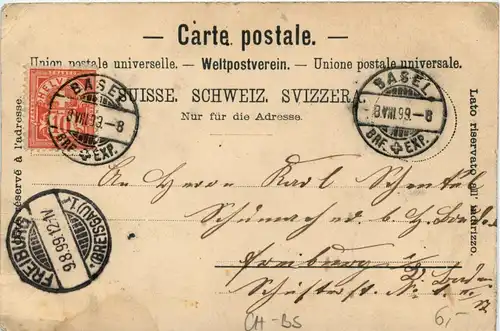 — Carte postale. —
Union postale universelle. — Weltpostverein. — Unione postale universale.
SUISSE. SCHWEIZ. SVIZZERA.
Nur für die Adresse.
réservé à l'adresse.
Lato riservato all'indirizzo.
HELVETIA
10
BASEL
VIII.99.-8
BRF. EXP.
BASEL
8.VIII.99.-8
BRF. EXP.
An Herrn Karl
Schumacher b. H.
Freiburg i. Baden
FREIBURG (BREISGAU) 1
9.8.99.12-1N
CH-BS
6,-